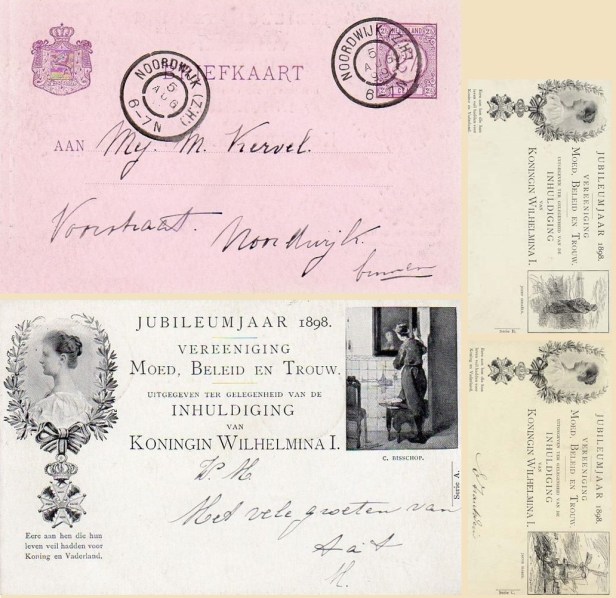 BRIEFKAART
NOORDWIJK (Z.H.)
5
AUG
6-7N
NOORDWIJK (Z.H.)
5
AUG
AAN
Mej. M. Kervel.
Voorstraat. Noordwijk.
binnen
JUBILEUMJAAR 1898.
VEREENIGING
MOED, BELEID EN TROUW.
UITGEGEVEN TER GELEGENHEID VAN DE
INHULDIGING
VAN
KONINGIN WILHELMINA I.
C. BISSCHOP.
Serie A.
Eere aan hen die hun
leven veil hadden voor
Koning en Vaderland.
Met vele groeten van
JUBILEUMJAAR 1898.
VEREENIGING
MOED, BELEID EN TROUW.
UITGEGEVEN TER GELEGENHEID VAN DE
INHULDIGING
VAN
KONINGIN WILHELMINA I.
Eere aan hen die hun
leven veil hadden voor
Koning en Vaderland.
JUBILEUMJAAR 1898.
VEREENIGING
MOED, BELEID EN TROUW.
UITGEGEVEN TER GELEGENHEID VAN DE
INHULDIGING
VAN
KONINGIN WILHELMINA I.
Eere aan hen die hun
leven veil hadden voor
Koning en Vaderland.